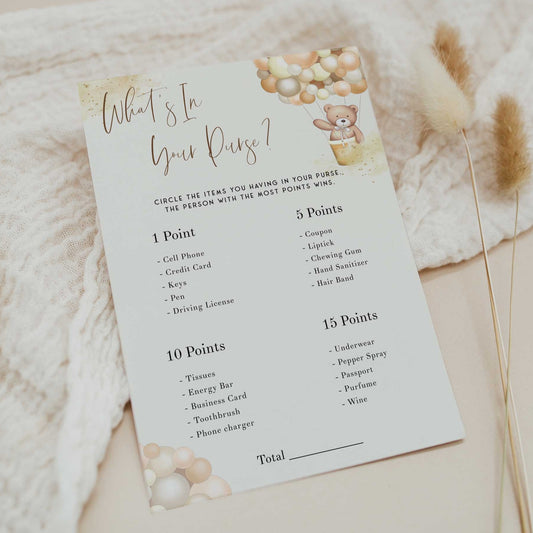 What's In
Your Purse?
CIRCLE THE ITEMS YOU HAVING IN YOUR PURSE.
THE PERSON WITH THE MOST POINTS WINS.
1 Point
- Cell Phone
- Credit Card
- Keys
- Pen
- Driving License
5 Points
- Coupon
- Liptick
- Chewing Gum
- Hand Sanitizer
- Hair Band
10 Points
- Tissues
- Energy Bar
- Business Card
- Toothbrush
- Phone charger
15 Points
- Underwear
- Pepper Spray
- Passport
- Purfume
- Wine
Total ________